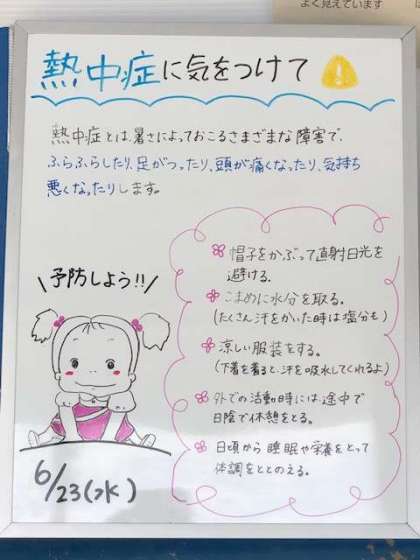 よく見えています
熱中症に気をつけて
熱中症とは、暑さによっておこるさまざまな障害で、
ふらふらしたり、足がつったり、頭が痛くなったり、気持ち
悪くなったりします。
\予防しよう!!/
帽子をかぶって直射日光を
避ける。
こまめに水分を取る。
(たくさん汗をかいた時は塩分も)
涼しい服装をする。
(下着を着ると、汗を吸水してくれるよ)
外での活動時には途中で
日陰で休憩をとる。
日頃から睡眠や栄養をとって
体調をととのえる。
6/23(水)